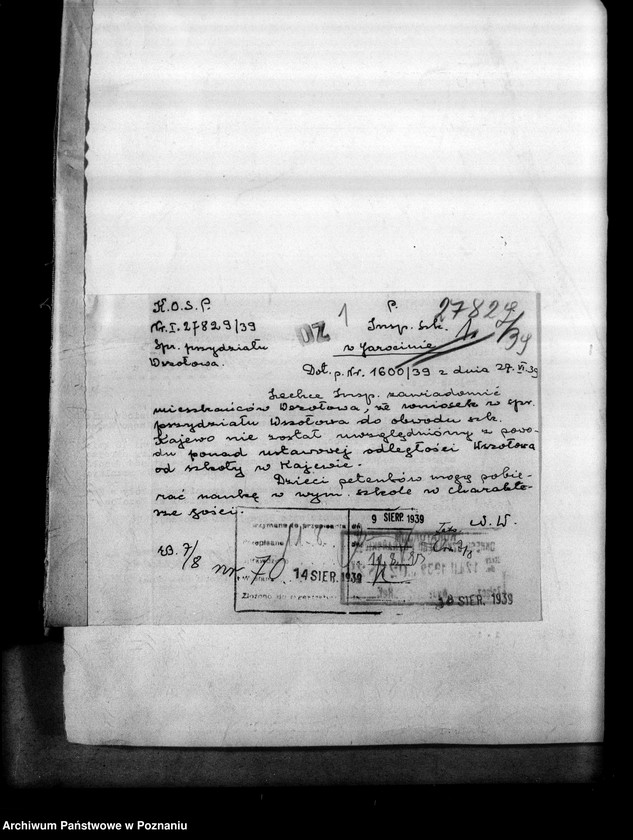 K.O.S.P.
Nr. I. 27829/39
Spr. przydziału
Wszołowa.
OZ 1
P.
Insp. szk.
w Jarocinie
27829/39
Dot. p. Nr. 1600/39 z dnia 27.VI.39
Zechce Insp. zawiadomić
mieszkańców Wszołowa, że wniosek w spr.
przydziału Wszołowa do obwodu szk.
Kajewo nie został uwzględniony z powo-
du ponad ustawowej odległości Wszołowa
od szkoły w Kajewie.
Dzieci petentów mogą pobie-
rać naukę w wym. szkole w charakte-
rze gości.
W. W.
9 SIERP. 1939
EB. 7/8
nr 70
14 SIER. 1939
18 SIER. 1939
Archiwum Państwowe w Poznaniu